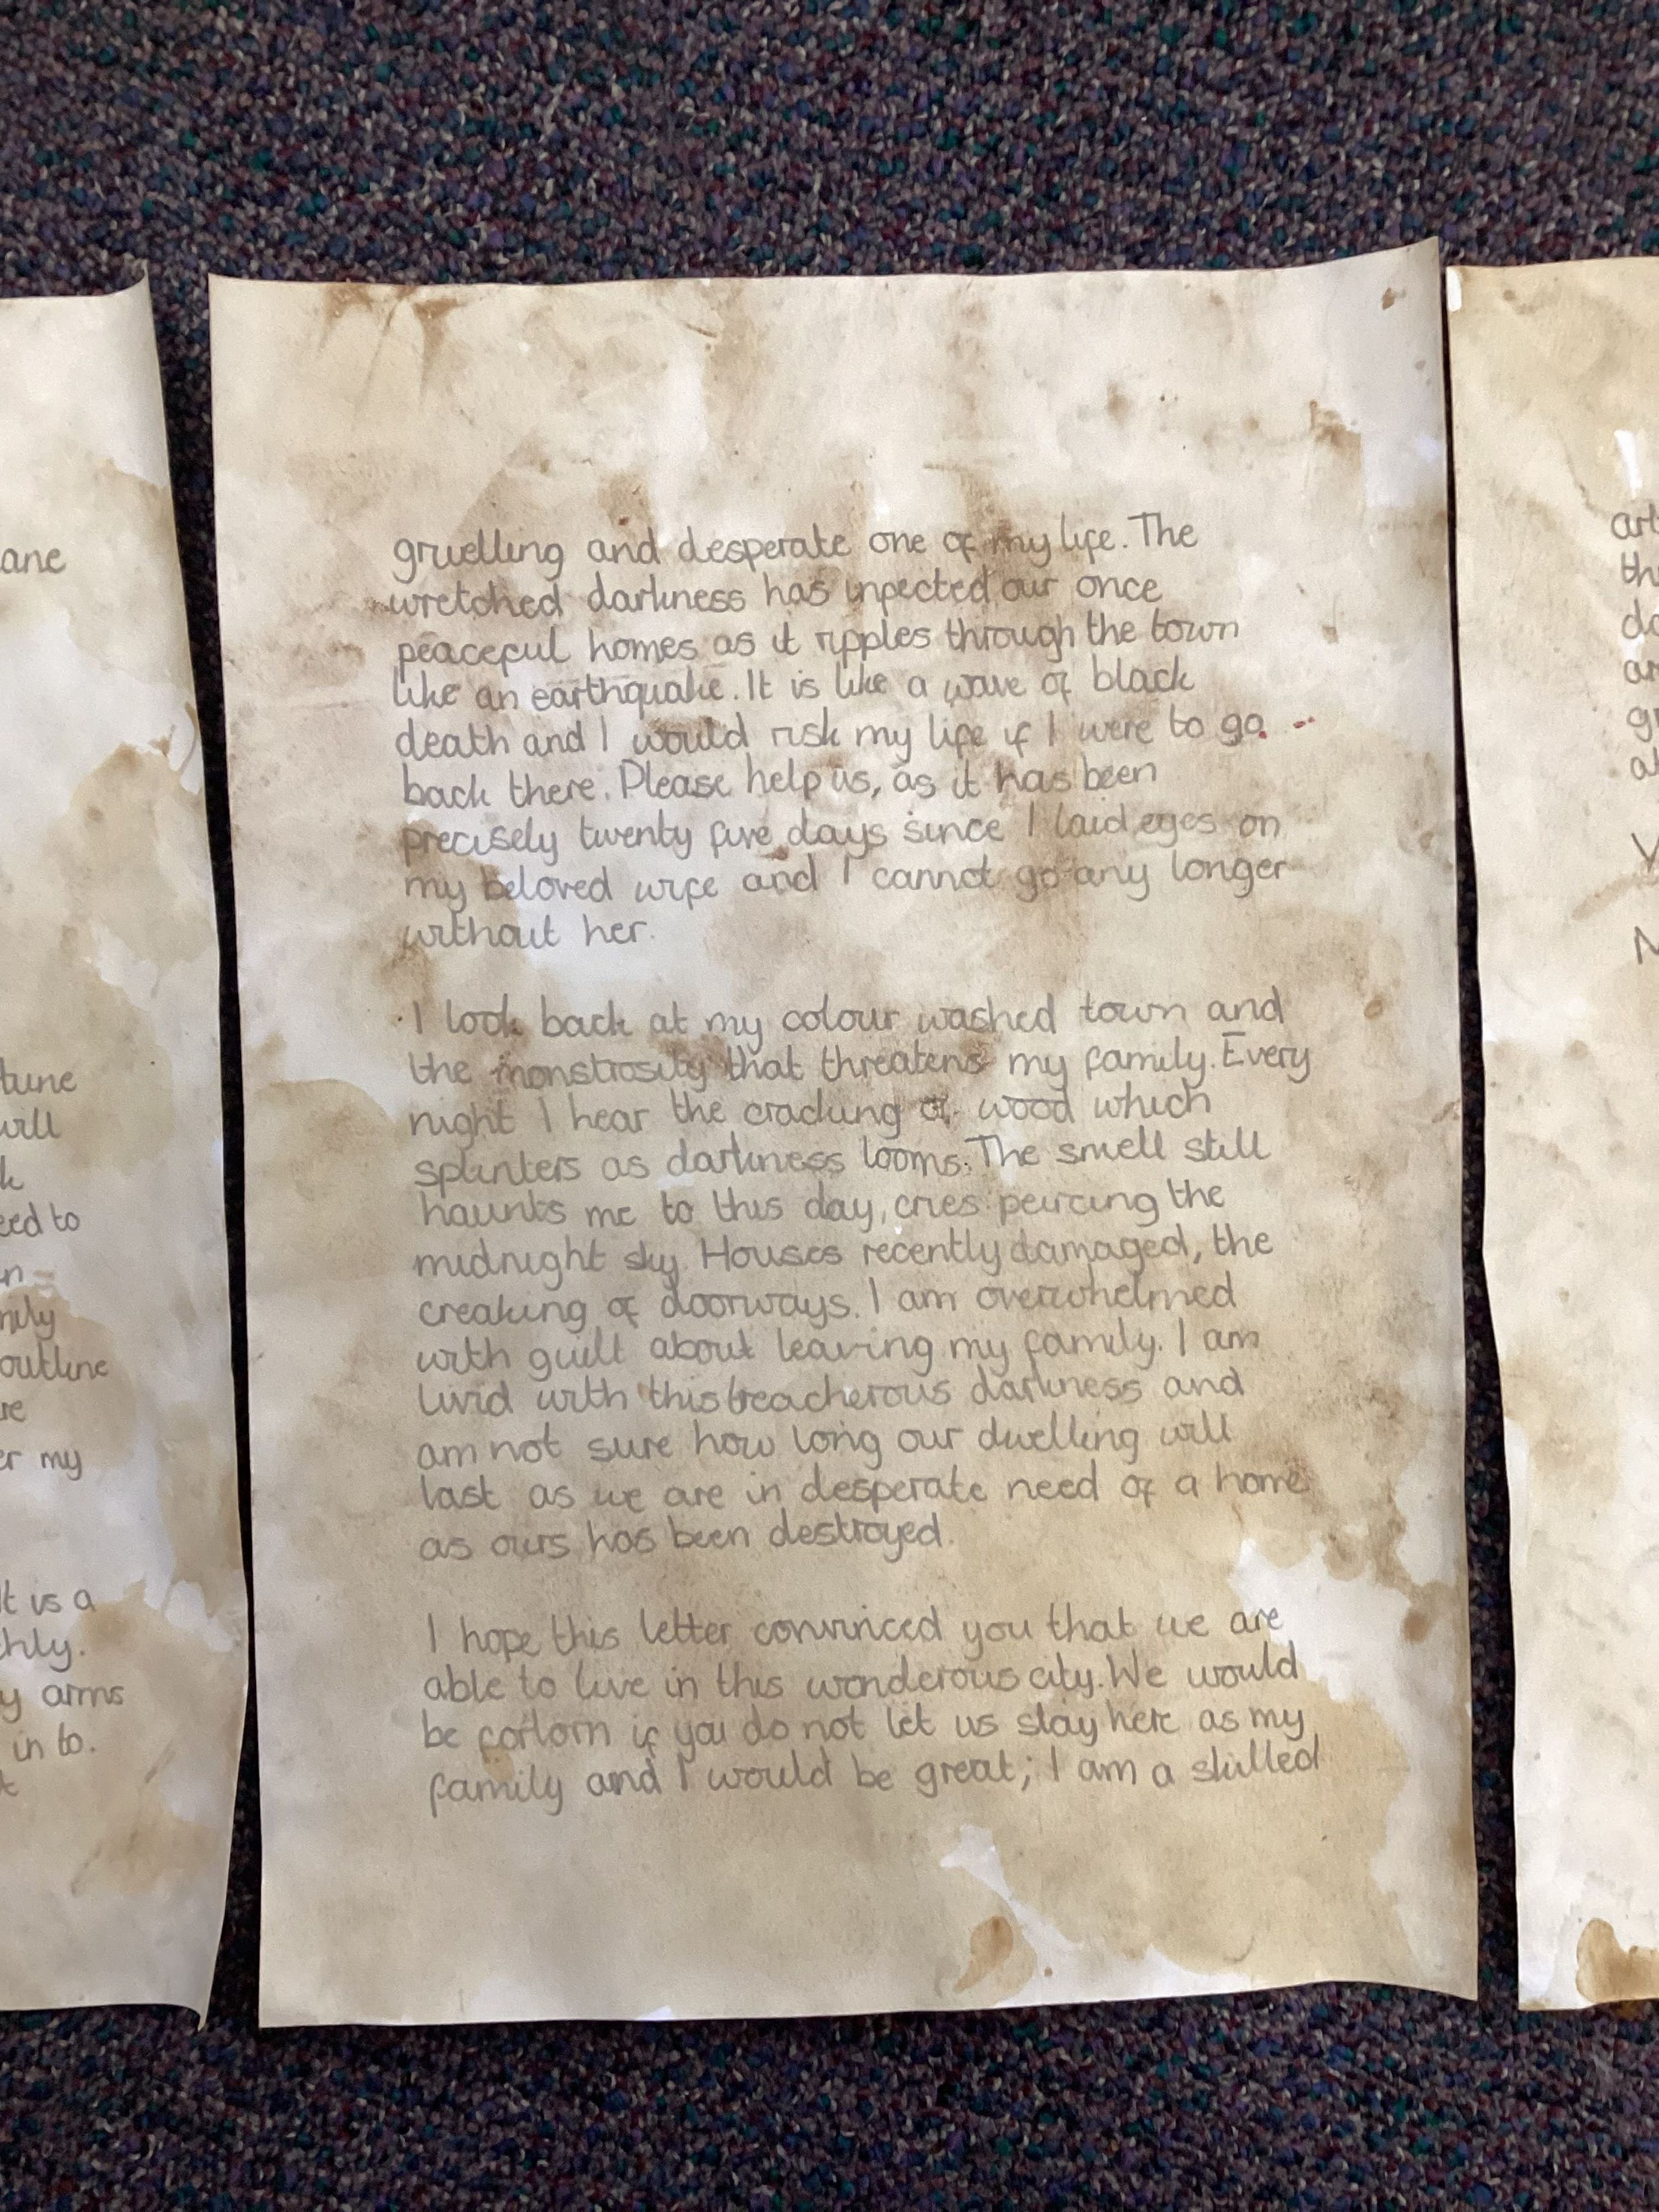 gruelling and desperate one of my life. The
wretched darkness has infected our once
peaceful homes as it ripples through the town
like an earthquake. It is like a wave of black
death and I would risk my life if I were to go
back there. Please help us, as it has been
precisely twenty five days since I laid eyes on
my beloved wife and I cannot go any longer
without her.
I look back at my colour washed town and
the monstrosity that threatens my family. Every
night I hear the cracking of wood which
splinters as darkness looms. The smell still
haunts me to this day, cries peircing the
midnight sky. Houses recently damaged, the
creaking of doorways. I am overwhelmed
with guilt about leaving my family. I am
livid with this treacherous darkness and
am not sure how long our dwelling will
last as we are in desperate need of a home
as ours has been destroyed.
I hope this letter convinced you that we are
able to live in this wonderous city. We would
be forlorn if you do not let us stay here as my
family and I would be great; I am a skilled
ane
tune
will
k
eed to
n
mily
outline
re
er my
It is a
hly.
y arms
in to.
t
art
th
do
ar
gr
at